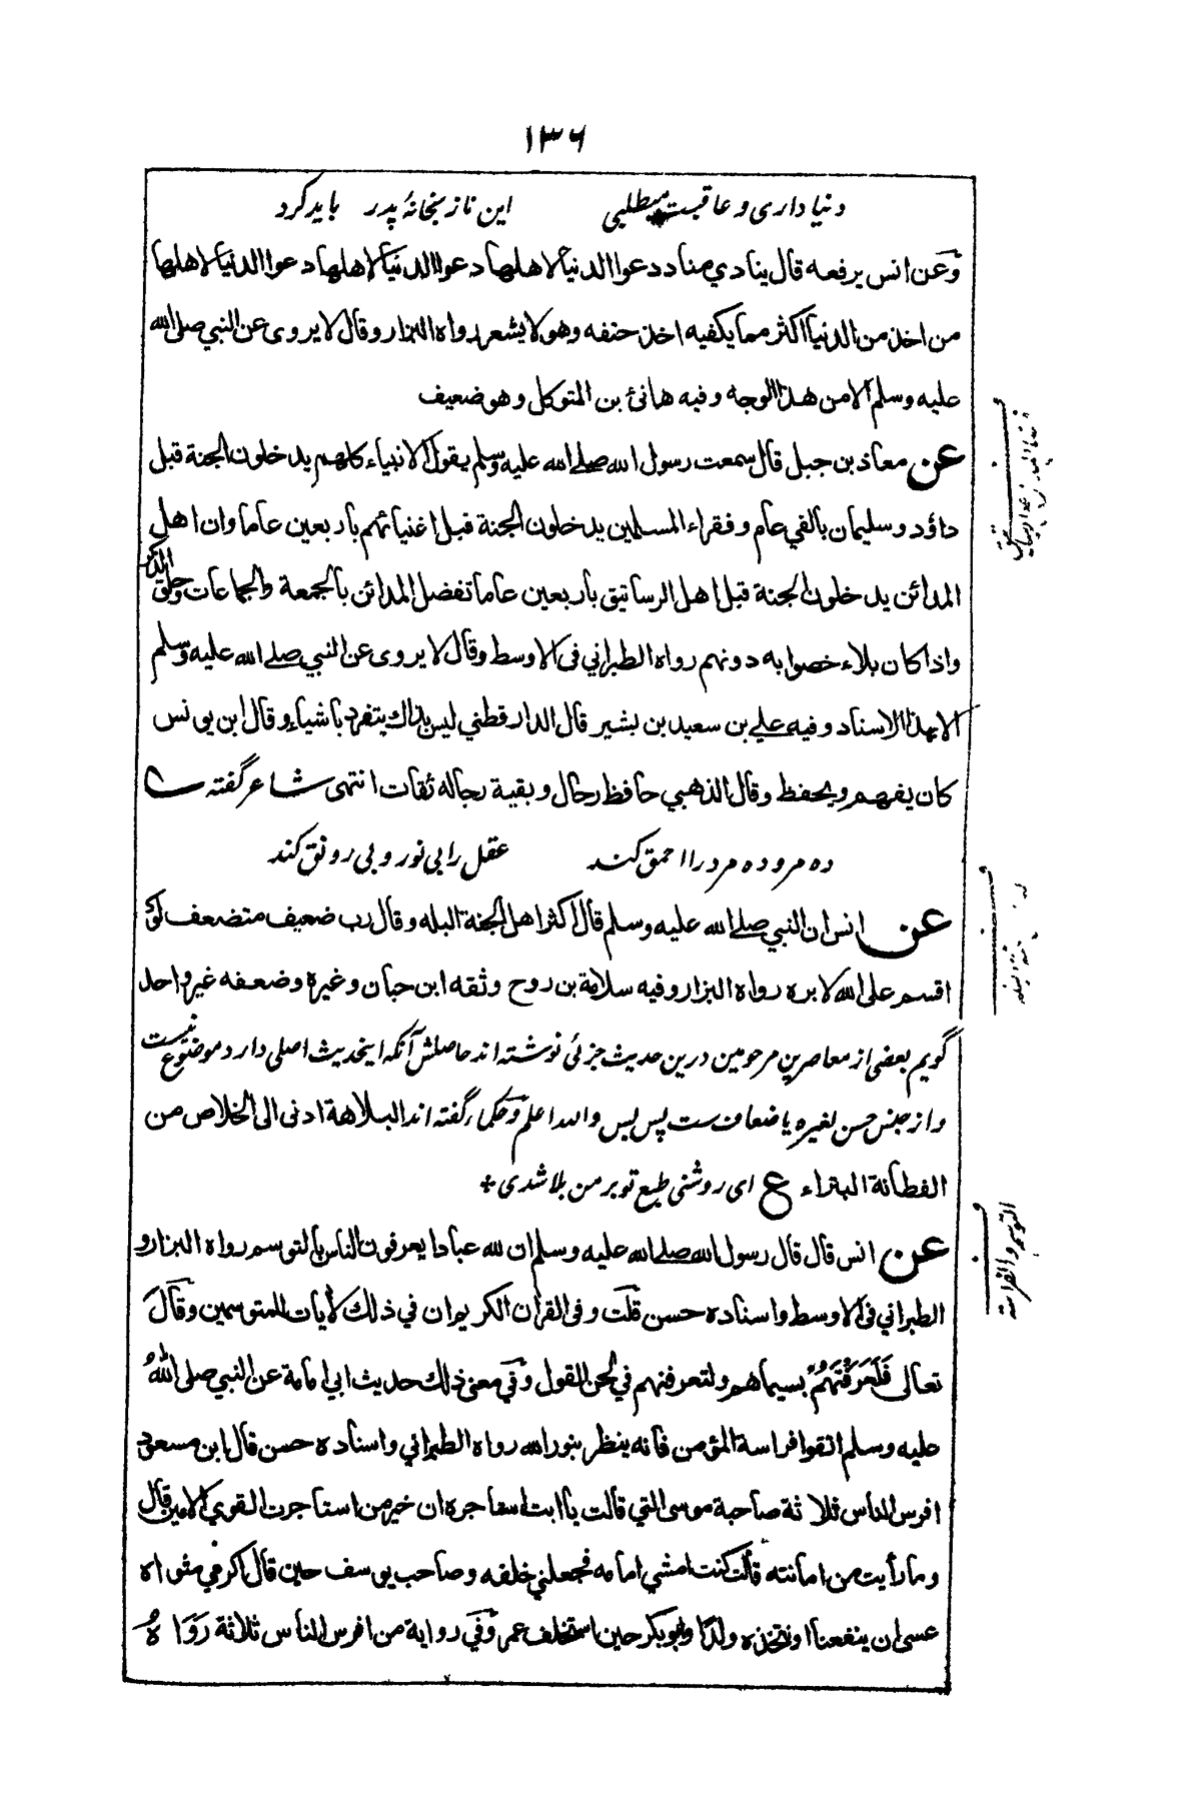 ١٣٦
دنیا داری و عاقبت میطلبی این ناز بخانهٔ پدر باید کرد
وعن انس يرفعه قال ينادي مناد دعوا الدنيا لاهلها دعوا الدنيا لاهلها دعوا الدنيا لاهلها
من اخذ من الدنيا اكثر مما يكفيه اخذ حتفه وهو لا يشعر رواه البزار وقال لا يروى عن النبي صلى الله
عليه وسلم الا من هذا الوجه وفيه هانئ بن المتوكل وهو ضعيف
عن معاذ بن جبل قال سمعت رسول الله صلے الله عليه وسلم يقول الانبياء كلهم يدخلون الجنة قبل
داؤد وسليمان بالفي عام وفقراء المسلمين يدخلون الجنة قبل اغنيائهم باربعين عاما وان اهل
المدائن يدخلون الجنة قبل اهل الرساتيق باربعين عاما تفضل المدائن بالجمعة والجماعات وحلق الذكر
واذا كان بلاء خصوا به دونهم رواه الطبراني فى الاوسط وقال لا يروى عن النبي صلے الله عليه وسلم
الا بهذا الاسناد وفيه علے بن سعيد بن بشير قال الدارقطني ليس بذاك يتفرد باشياء وقال ابن يونس
كان يفهم ويحفظ وقال الذهبي حافظ رحال وبقية رجاله ثقات انتهى شاعر گفته
ده مرو ده مرد را احمق کند عقل را بی نور و بی رونق کند
عن انس ان النبي صلے الله عليه وسلم قال اكثر اهل الجنة البله وقال رب ضعيف متضعف لو
اقسم على الله لابره رواه البزار وفيه سلامة بن روح وثقه ابن حبان وغيره وضعفه غير واحد
گویم بعضی از معاصرین مرحومین درین حدیث جزئی نوشته اند حاصلش آنکه اینحدیث اصلی دارد موضوع نیست
و از جنس حسن لغیره یا ضعاف ست پس بس والله اعلم و حکماء گفته اند البلاهة ادنى الى الخلاص من
الفطانة البتراء ع ای روشنی طبع تو بر من بلا شدی +
عن انس قال قال رسول الله صلے الله عليه وسلم ان لله عبادا يعرفون الناس بالتوسم رواه البزار و
الطبراني فى الاوسط واسناده حسن قلت وفى القرآن الكريم ان في ذلك لآيات للمتوسمين وقال
تعالى فَلَعَرَفْتَهُمْ بسيماهم ولتعرفنهم في لحن القول وفي معنى ذلك حديث ابي امامة عن النبي صلى الله
عليه وسلم اتقوا فراسة المؤمن فانه ينظر بنور الله رواه الطبراني واسناده حسن قال ابن مسعود
افرس الناس ثلاثة صاحبة موسى التي قالت يا ابت استاجره ان خير من استاجرت القوي الامين قال
وما رأيت من امانته قالت كنت امشي امامه فجعلني خلفه وصاحب يوسف حين قال اكرمي مثواه
عسى ان ينفعنا او نتخذه ولدًا وابو بكر حين استخلف عمر وفي رواية من افرس الناس ثلاثة رواه
التوسم والفراسة